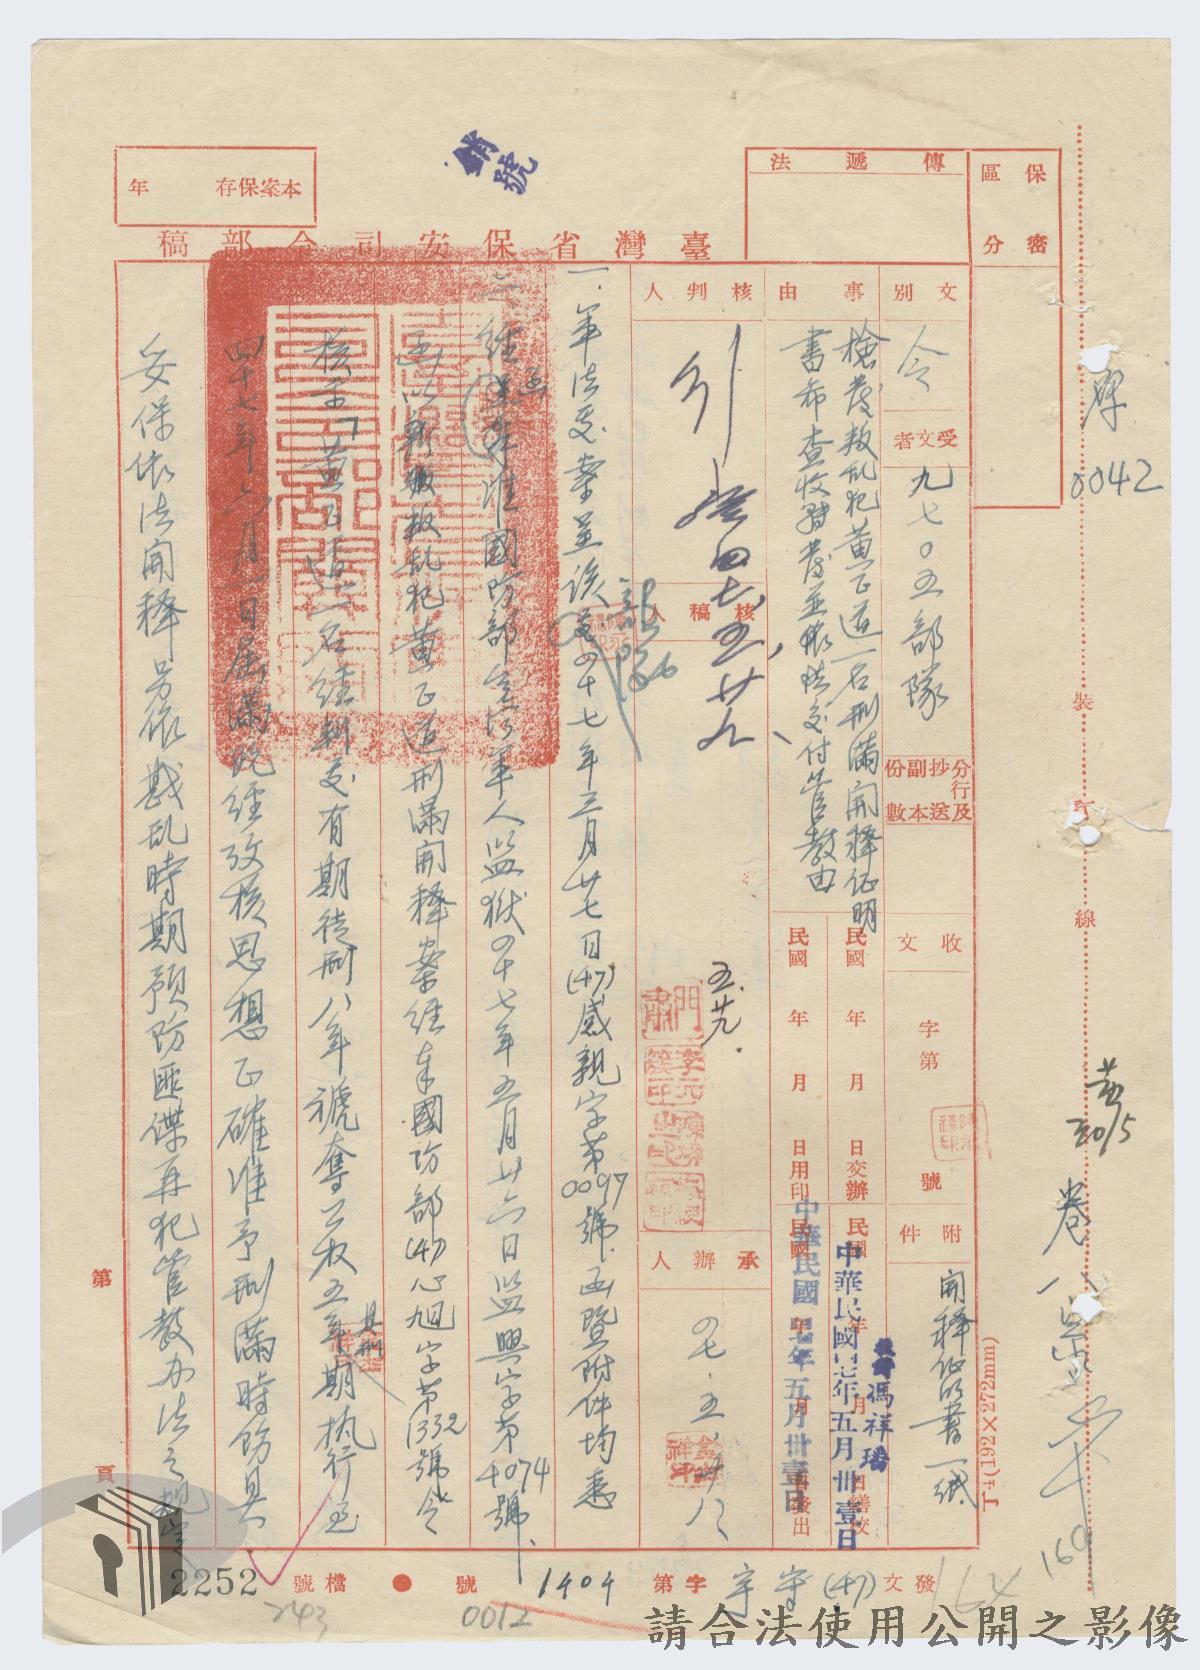 保密
區分
傳遞法
本案保存　年
銷號
臺灣省保安司令部稿
0042
裝
訂
線
文別
令
受文者
九七〇五部隊
分行及抄送副本份數
收文
字第
號
附件
開釋證明書一紙
事由
檢發叛乱犯黃正道一名刑滿開釋証明
書希查收轉發並依法交付管教由
民國　年　月　日交辦
民國　年　月　日繕校
民國　年　月　日用印
民國　年　月　日發出
中華民國四七年五月卅壹日
中華民國四七年五月卅壹日
馮祥瑞
核判人
核稿人
承辦人
五.廿九.
四七.五.廿八
一.軍法處案呈該
四十七年三月廿七日(47)感親字第0097號函暨附件均悉
二.經
准國防部
軍人監獄四十七年五月廿六日監興字第4074號
函以新
叛乱犯黃正道刑滿開釋案經奉國防部(47)心旭字第1332號令
核示「黃正道一名經判處有期徒刑八年褫奪公权五年
刑期執行至
四十七年六月一日屆滿既經攷核思想正確准予刑滿時飭具
妥保依法開釋另依戡乱時期預防匪諜再犯管教办法之規定
第
頁
T4(192×272mm)
發文
(47)
守宇
字第
1404
號
檔號
2252
243
0012
164
160
請合法使用公開之影像